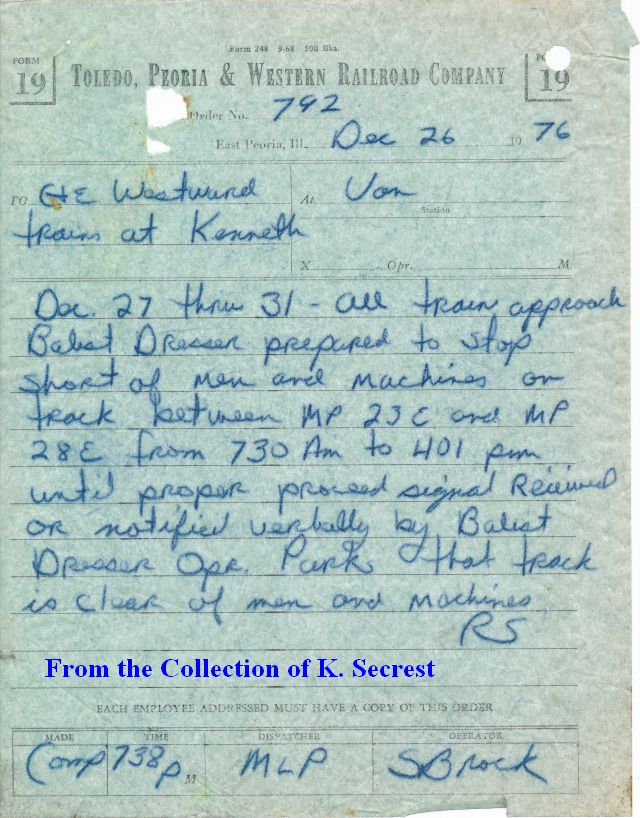 Form 248 9-68 500 Bks.
FORM 19
TOLEDO, PEORIA & WESTERN RAILROAD COMPANY
FORM 19
Order No. 792
East Peoria, Ill. Dec 26 1976
TO C+E Westward At Van
Station
trains at Kenneth
X Opr. M
Dec. 27 thru 31 - all train approach
Balist Dresser prepared to stop
short of men and machines on
track between MP 23E and MP
28E from 730 Am to 401 pm
until proper proceed signal Received
or notified verbally by Balist
Dresser Opr. Park that track
is clear of men and machines.
RS
From the Collection of K. Secrest
EACH EMPLOYEE ADDRESSED MUST HAVE A COPY OF THIS ORDER
MADE TIME DISPATCHER OPERATOR
Comp 738 P M MLP SBrock